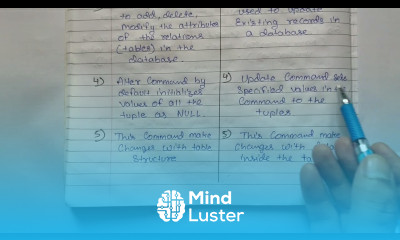 3)
to add, delete,
modify the attributes
of the relations
(tables) in the
database.
used to update
Existing records in
a database
4) Alter Command by
default initializes
values of all the
tuple as NULL.
4) Update Command sets
specified values in the
Command to the
tuples
5) This Command make
changes with table
structure
5) This Command make
changes with
inside the
Mind
Luster